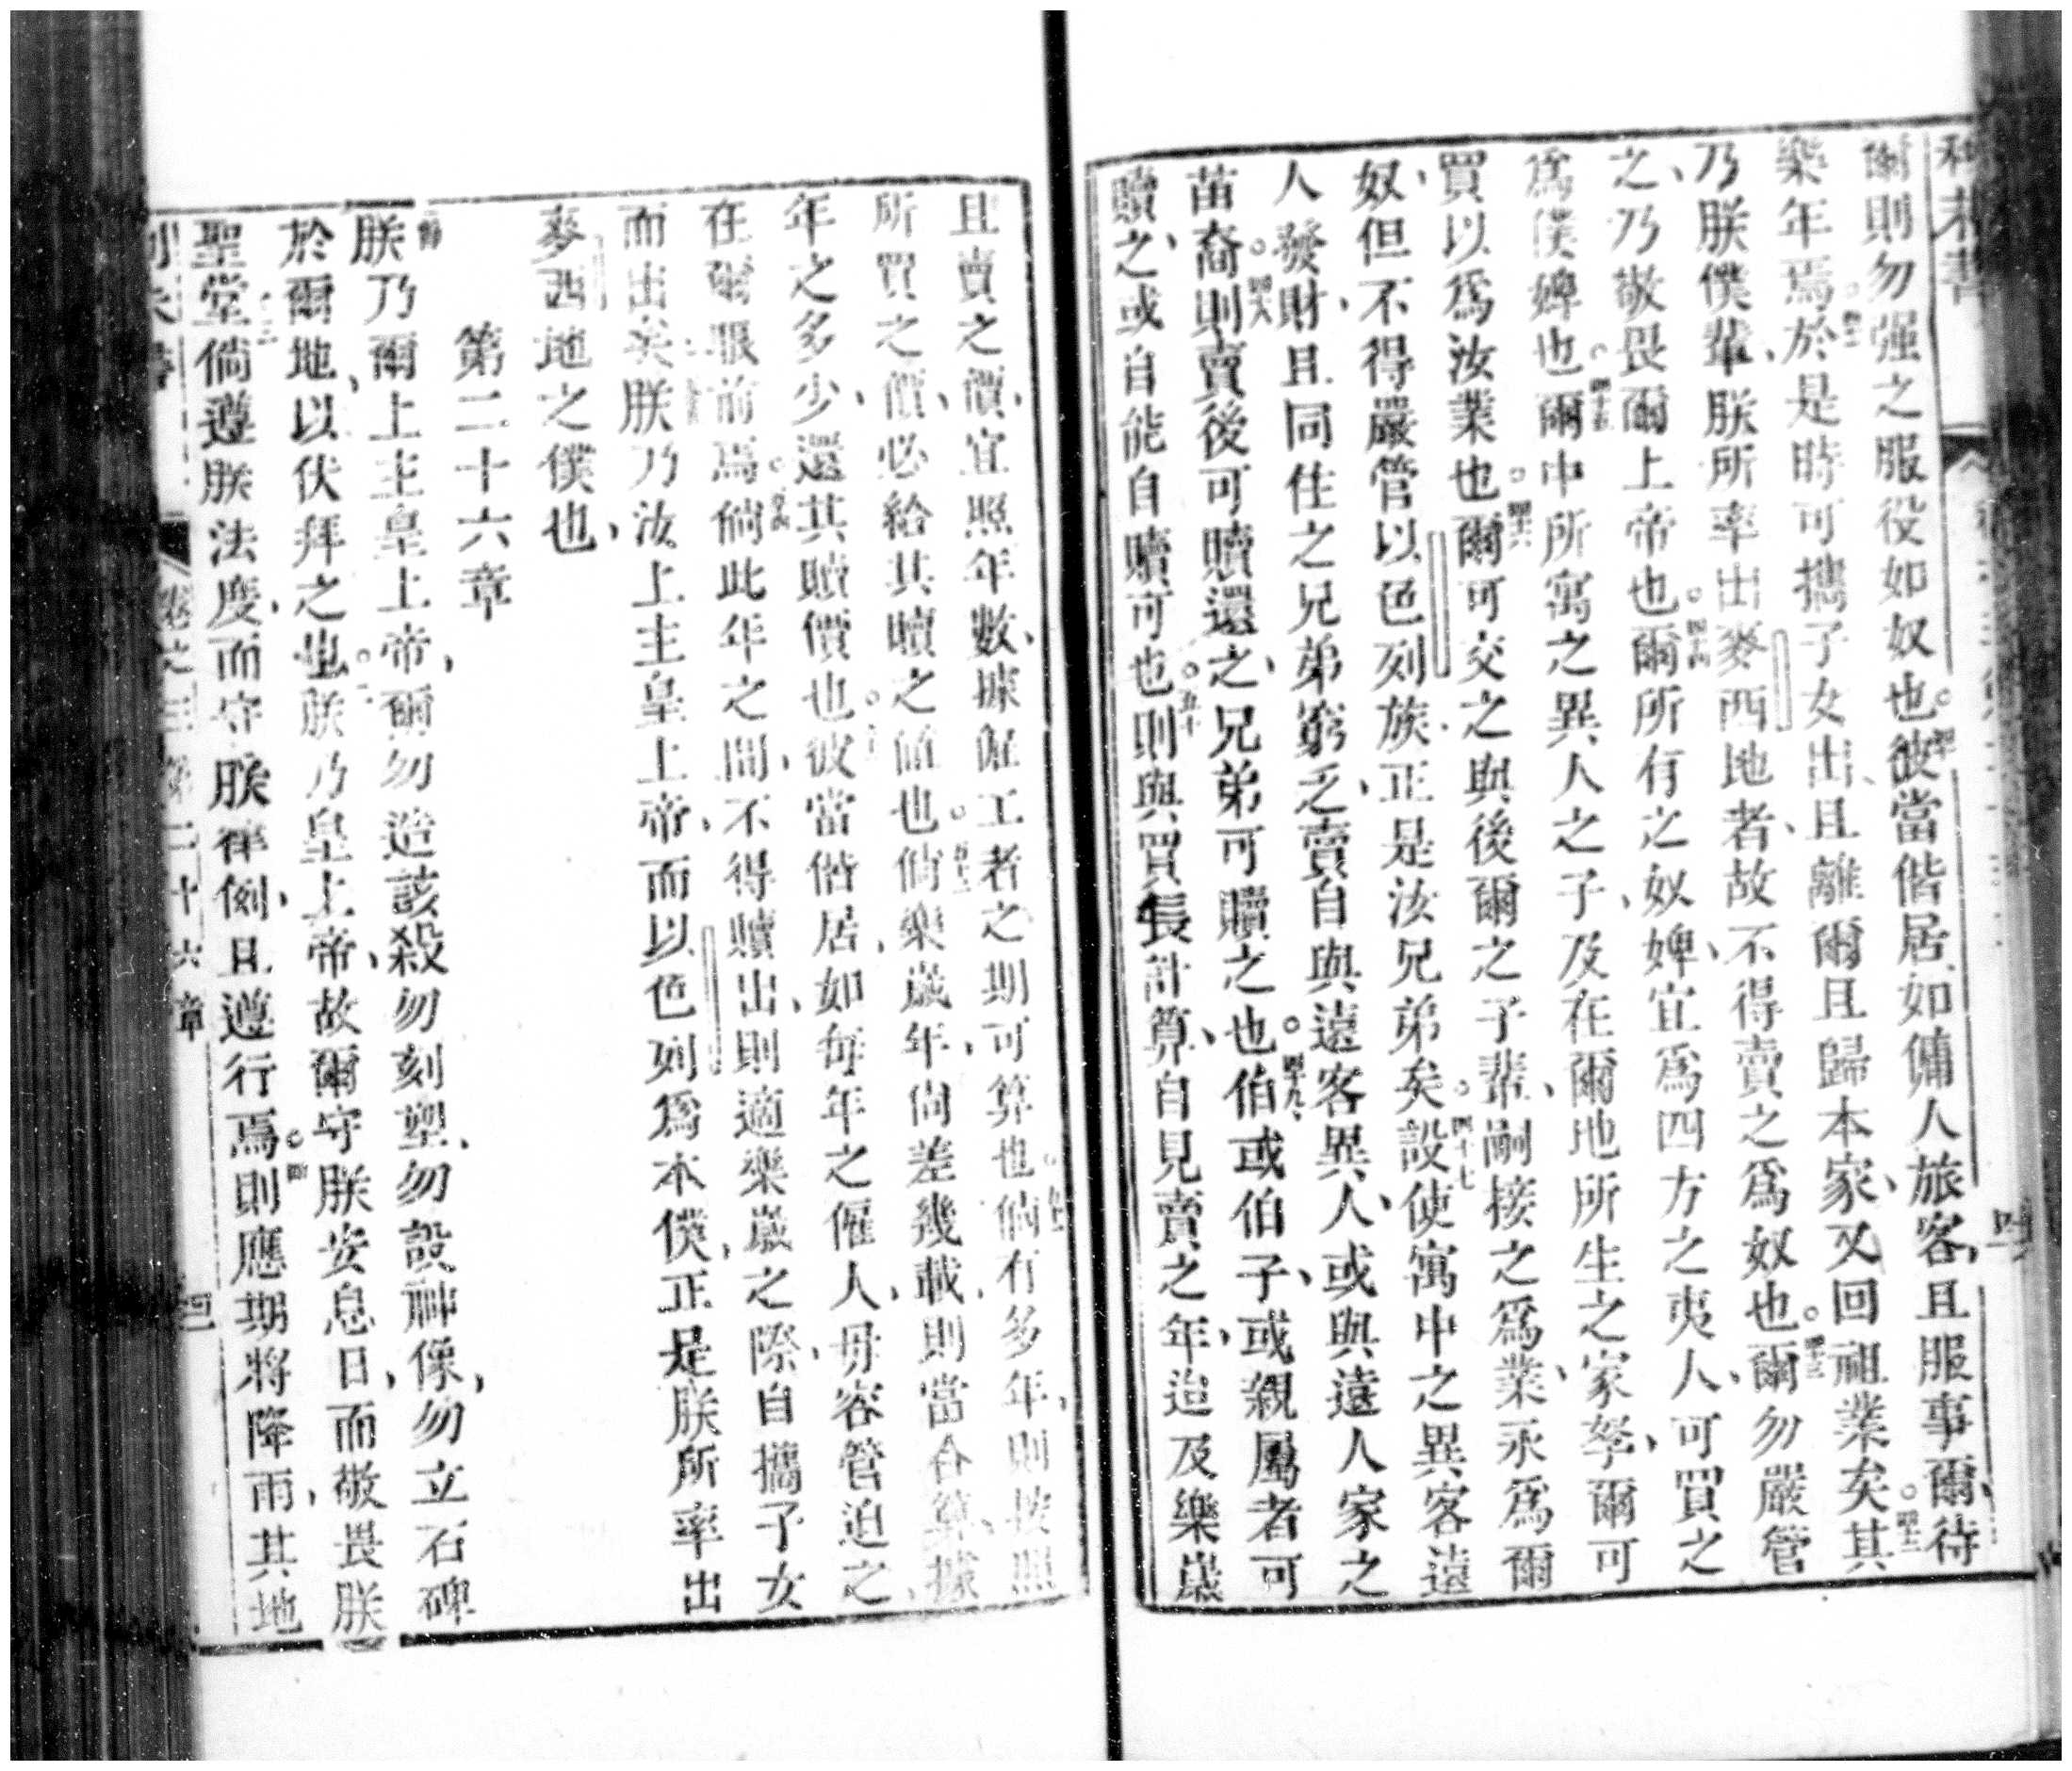 爾則勿强之服役如奴也。彼當偕居、如傭人旅客、且服事爾、待
樂年焉。於是時可攜子女出、且離爾且歸本家、又回祖業矣。其
乃朕僕輩、朕所率出麥西地者、故不得賣之爲奴也。爾勿嚴管
之、乃敬畏爾上帝也。爾所有之奴婢、宜爲四方之夷人、可買之
爲僕婢也。爾中所寓之異人之子、及在爾地所生之家孥、爾可
買以爲汝業也。爾可交之與後爾之子輩、嗣接之爲業、永爲爾
奴、但不得嚴管以色列族、正是汝兄弟矣。設使寓中之異客遠
人發財、且同住之兄弟窮乏、賣自與遠客異人、或與遠人家之
苗裔。則賣後可贖還之、兄弟可贖之也。伯或伯子、或親屬者可
贖之、或自能自贖可也。則與買長計算、自見賣之年、迨及樂歲
且賣之價、宜照年數、據僱工者之期可算也。倘有多年、則按照
所買之價、必給其贖之値也。倘樂歲年、尙差幾載、則當合算、據
年之多少、還其贖價也。彼當偕居、如每年之僱人、毋容管迫之、
在爾眼前焉。倘此年之間、不得贖出、則適樂歲之際、自攜子女
而出矣。朕乃汝上主皇上帝、而以色列爲本僕、正是朕所率出
麥西地之僕也、
第二十六章
朕乃爾上主皇上帝、爾勿造該殺、勿刻塑、勿設神像、勿立石碑
於爾地、以伏拜之也。朕乃皇上帝、故爾守朕安息日、而敬畏朕
聖堂。倘遵朕法度、而守朕律例、且遵行焉。則應期將降雨、其地
卷之三 第二十六章